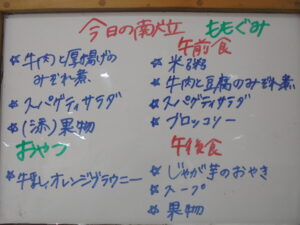 今日の献立 ももぐみ
☆牛肉と厚揚げの
みぞれ煮
☆スパゲティサラダ
☆(添)果物
おやつ
☆牛乳、オレンジブラウニー
午前食
☆米粥
☆牛肉と豆腐のみぞれ煮
☆スパゲティサラダ
☆ブロッコリー
午後食
☆じゃが芋のおやき
☆スープ
☆果物